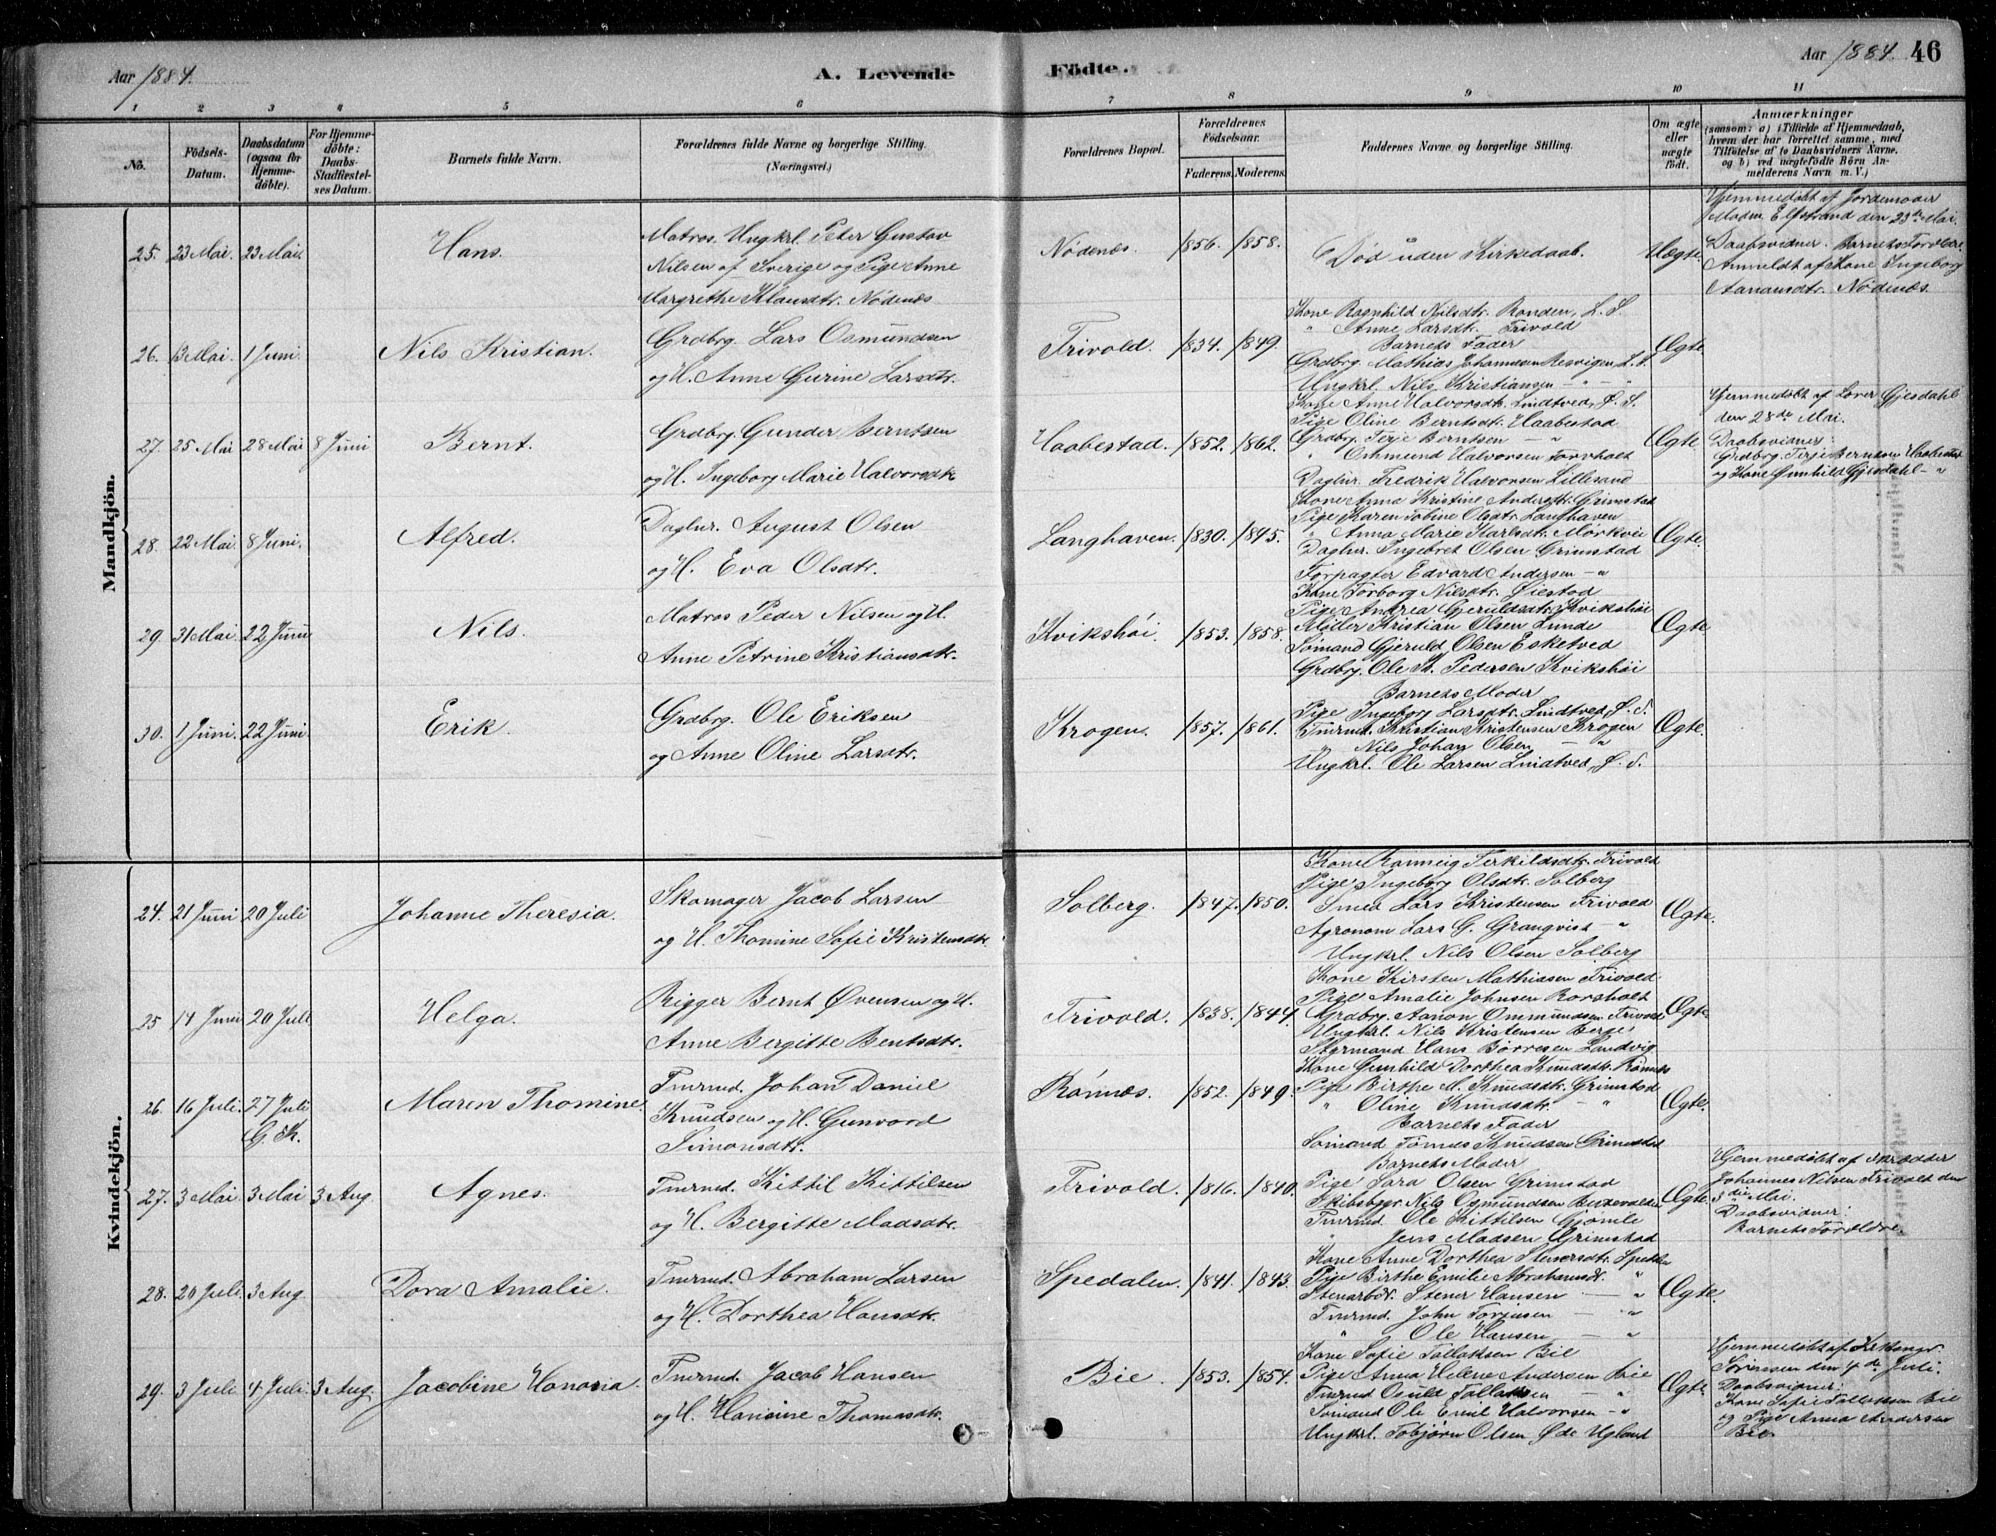 Aar 1884.
A. Levende
Födte.
Aar 1884. 46
1 2 3 4 5 6 7 8 9 10 11
No.
Födsels-Datum.
Daabsdatum (ogsaa for Hjemme-döbte).
For Hjemme-döbte: Daabs-Stadfæstel-ses Datum.
Barnets fulde Navn.
Forældrenes fulde Navne og borgerlige Stilling. (Næringsvei.)
Forældrenes Bopæl.
Forældrenes Födselsaar.
Faderens. Moderens.
Faddernes Navne og borgerlige Stilling.
Om ægte eller uægte födt.
Anmærkninger
(saasom: a) i Tilfælde af Hjemmedaab,
hvem der har forrettet samme, med
Tilföielse af to Daabsvidners Navne,
og b) ved uægtefödte Börn An-
melderens Navn m. V.)
Mandkjön.
25. 23 Mai. 23 Mai. Hans.
Matros. Ungkrl. Peter Gustav
Nilsen af Sverige og Pige Anne
Margrethe Klausdtr. Nødenæs
Nødenæs. 1856. 1858.
Død uden Kirkedaab.
Uægte.
Hjemmedøbt af Jordemoder
Madm. Elfstrand den 23de Mai.
Daabsvidner. Barnets Forældre.
Anmeldt af Kone Ingeborg
Aanansdtr. Nødenæs.
26. 13 Mai. 1 Juni. Nils Kristian.
Grdbrg. Lars Osmundsen
og H. Anne Gurine Larsdtr.
Trivold. 1834. 1849.
Kone Ragnhild Nilsdtr. Ronden, L. S.
" Anne Larsdtr. Trivold
Barnets Fader
Grdbrg. Mathias Johannesen Resvigen L. S.
Ungkrl. Nils Kristiansen — " — "
Ægte
27. 25 Mai 28 Mai 8 Juni Bernt.
Grdbrg. Gunder Berntsen
og H. Ingeborg Marie Halvorsdtr.
Haabestad. 1852. 1862.
Kone Anne Halvorsdtr. Lindtved, Ø. S.
Pige Oline Berntsdtr. Haabestad
Grdbrg. Terje Berntsen — "
" Ommund Halvorsen Torvholt
Daglnr. Fredrik Halvorsen Lillesand
Ægte.
Hjemmedøbt af Lærer Gjesdahl
den 28de Mai.
Daabsvidner:
Grdbrg. Terje Berntsen Haabestad
og Kone Gunhild Gjesdahl — "
28. 22 Mai. 8 Juni. Alfred.
Daglnr. August Olsen
og H. Eva Olsdtr.
Langhaven. 1830. 1845.
Kone Anna Kristine Andersdtr. Grimstad
Pige Karen Tobine Olsdtr. Langhaven
" Anna Marie Karlsdtr. Mörkvei
Daglnr. Ingebret Olsen Grimstad
Forpagter Edvard Andersen — "
Ægte.
29. 31 Mai. 22 Juni Nils.
Matros Peder Nilsen og H.
Anne Petrine Kristiansdtr.
Kvikshöi. 1853. 1858.
Kone Torborg Nilsdtr. Øiestad
Pige Andrea Gjeruldsdtr. Kvikshöi
Møller Kristian Olsen Lunde
Sømand Gjeruld Olsen Esketved
Grdbrg. Ole K. Pedersen Kvikshöi
Ægte
30. 1 Juni. 22 Juni Erik.
Grdbrg. Ole Eriksen
og Anne Oline Larsdtr.
Krogen. 1857. 1861.
Barnets Moder
Pige Ingeborg Larsdtr. Lindtved, Ø. S.
Tmrmd. Kristian Kristensen Krogen
" Nils Johan Olsen — "
Ungkrl. Ole Larsen Lindtved, Ø. S.
Ægte.
Kvindekjön.
24. 21 Juni 20 Juli Johanne Theresia.
Skomager Jacob Larsen
og H. Thomine Sofie Kristensdtr.
Solberg. 1847. 1850.
Kone Ranneig Terkildsdtr. Trivold
Pige Ingeborg Olsdtr. Solberg
Smed Lars Kristensen Trivold
Agronom Lars G. Granqvist "
Ungkrl. Nils Olsen Solberg
Ægte.
25 14 Juni 20 Juli Helga.
Rigger Bernt Øvensen og H.
Anne Bergitte Bentsdtr.
Trivold. 1838. 1844.
Kone Kirsten Mathiasen Trivold
Pige Amalie Johnsen Rorsholt
Grdbrg. Aanon Ommundsen Trivold
Ungkrl. Nils Kristensen Berge
Styrmand Hans Børresen Landvig
Ægte.
26. 16 Juli. 27 Juli G. K. Maren Thomine.
Tmrmd. Johan Daniel
Knudsen og H. Gunvord
Simonsdtr.
Rönnæs. 1852. 1849.
Kone Gunhild Dorthea Knudsdtr. Rönnæs
Pige Birthe M. Knudsdtr. Grimstad
" Oline Knudsdtr. — "
Barnets Fader
Sømand Tönnes Knudsen Grimstad
Ægte.
27. 3 Mai 3 Mai 3 Aug. Agnes.
Tmrmd. Kittil Kittilsen
og H. Bergitte Madsdtr.
Trivold. 1816. 1840.
Barnets Moder
Pige Sara Olsen Grimstad
Skibsbygr. Nils Osmundsen
Tmrmd. Ole Kittilsen Gjömle
" Jens Madsen Grimstad
Ægte.
Hjemmedøbt af Skrædder
Johannes Nilsen Trivold den
3die Mai.
Daabsvidner:
Barnets Forældre.
28. 20 Juli. 3 Aug Dora Amalie.
Tmrmd. Abraham Larsen
og H. Dorthea Hansdtr.
Spedalen. 1841. 1843.
Kone Anne Dorthea Stenersdtr. Spedalen
Pige Birthe Emilie Abrahamsdtr. "
Stenarbdr. Stener Hansen — "
Tmrmd. John Torjusen — "
" Ole Hansen — "
Ægte.
29. 3 Juli 4 Juli 3 Aug. Jacobine Hanasia.
Tmrmd. Jacob Hansen
og H. Hansine Thomasdtr.
Bie. 1853. 1854.
Kone Sofie Tallaksen Bie
Pige Anna Helene Andersen Bie
Tmrmd Osuld Tallaksen — "
Sømand Ole Emil Halvorsen — "
Ungkrl. Tobjørn Olsen Øde Ugland
Ægte
Hjemmedøbt af
Sørensen den 4de Juli.
Daabsvidner:
Kone Sofie Tallaksen Bie
og Pige Anna Andersen
Bie.